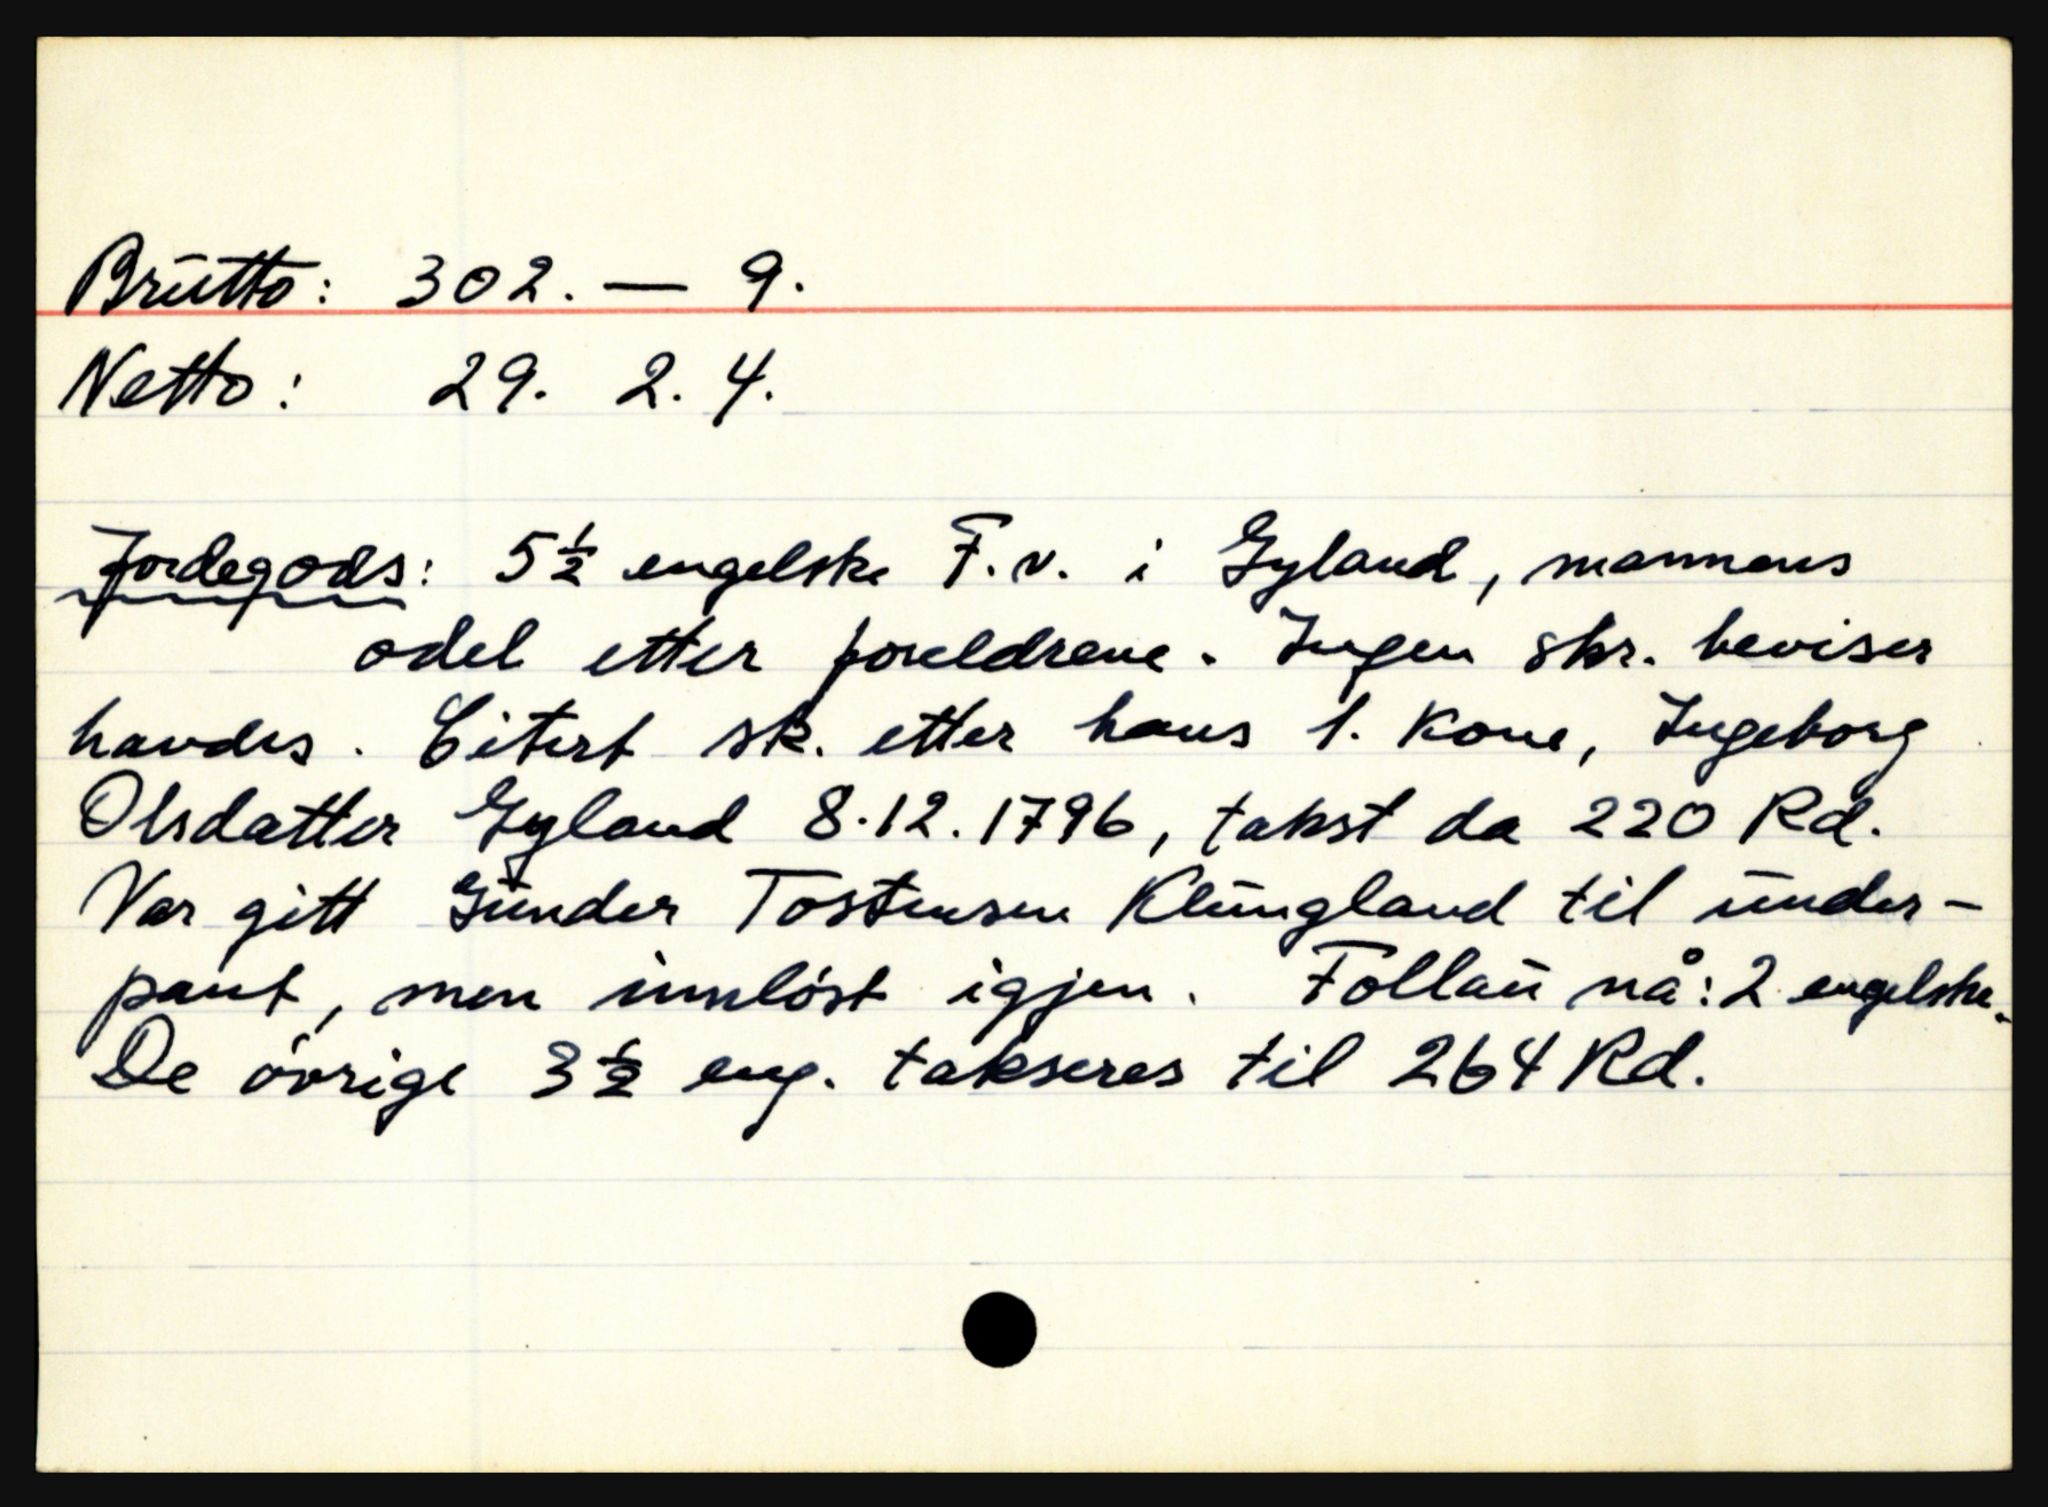 Brutto: 302. — 9.
Netto: 29. 2. 4.
Jordegods: 5½ engelske F.v. i Gyland, mannens
odel etter foreldrene. Ingen skr. beviser
havdes. Citert sk. etter hans 1. kone, Ingeborg
Olsdatter Gyland 8.12.1796, takst da 220 Rd.
Var gitt Gunder Tostensen Klungland til under-
pant, men innløst igjen. Follau nå: 2 engelske.
De øvrige 3½ eng. takseres til 264 Rd.